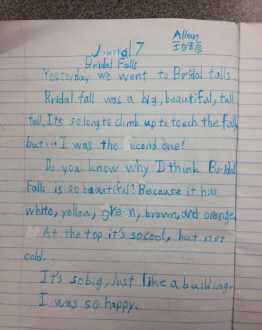 Allen
Journal 7
Bridal Falls
Yesterday we went to Bridal falls.
Bridal fall was a big, beautiful, tall
fall. Its so long to climb up to touch the falls
but... I was the second one!
Do you know why I think Bridal
Falls is so beautiful? Because it has
white, yellow, green, brown, and orange.
At the top it's so cool, but not
cold.
It's so big, Just like a building.
I was so happy.